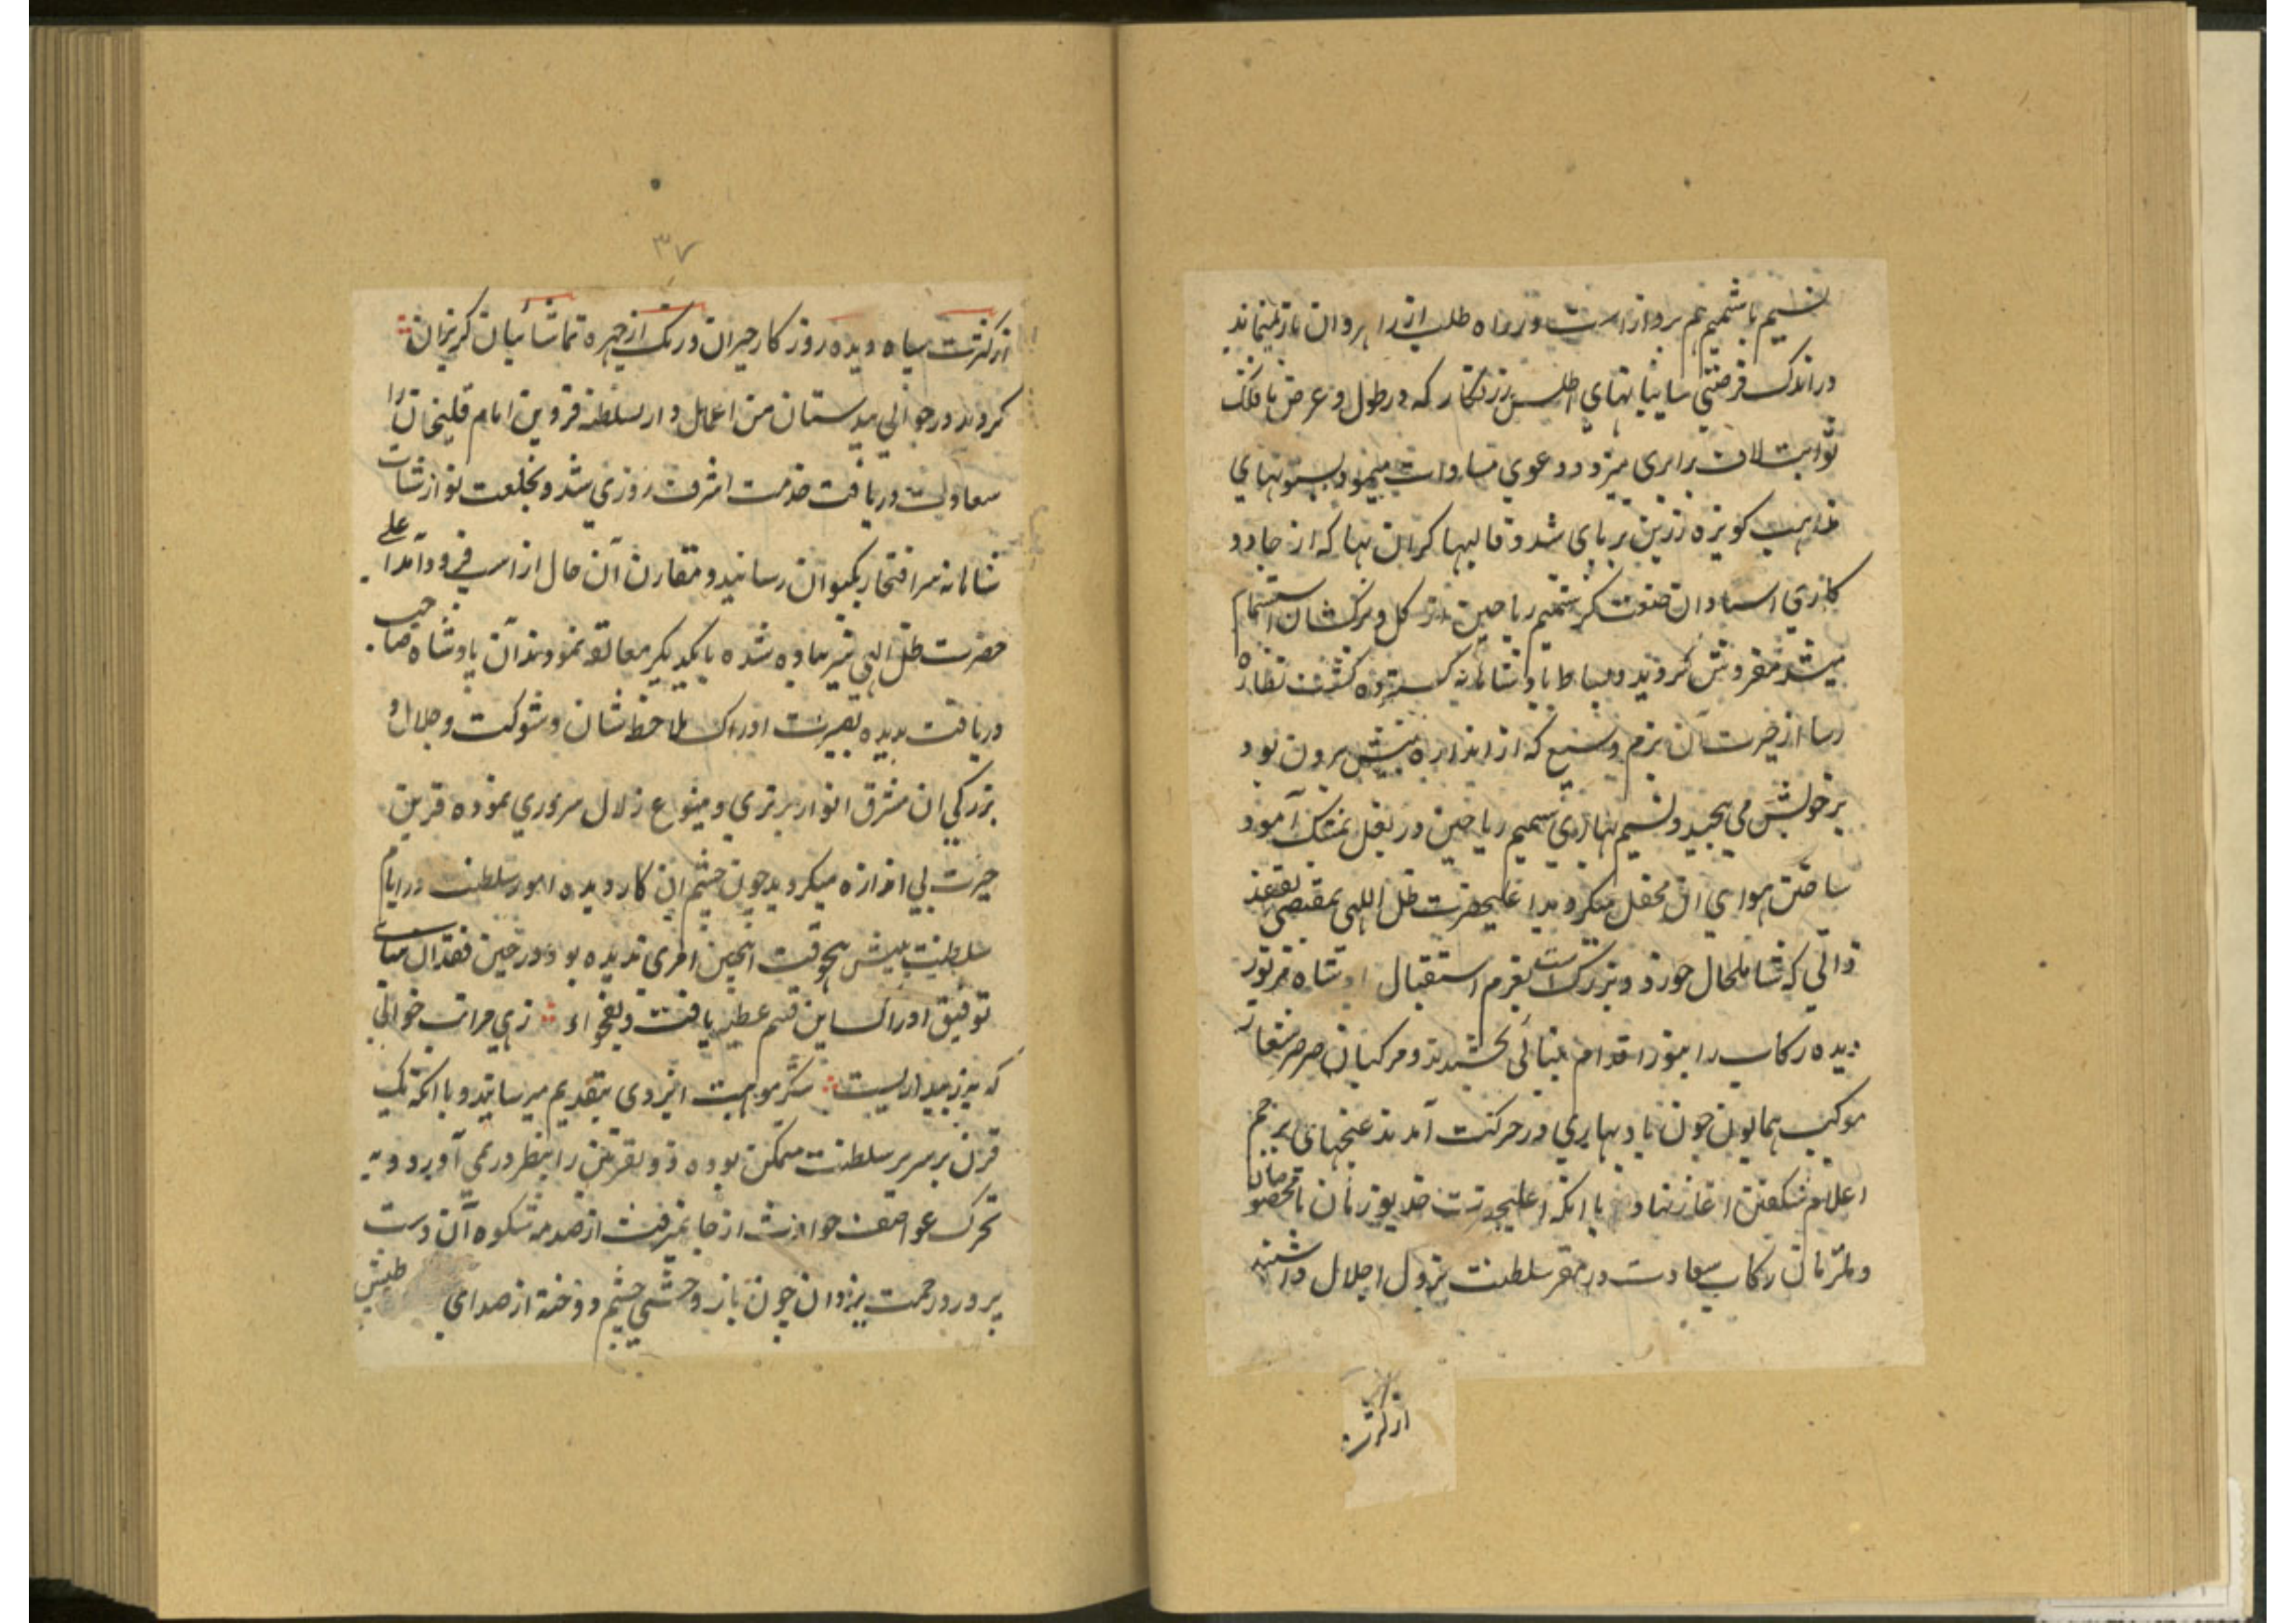 نسیم با شمیم هم پرواز است و در راه طلب از راهروان باز نمیماند
در اندک فرصتی سایبانهای اطلس زرنگار که در طول و عرض با فلک
ثوابت لاف برابری میزد و دعوی مساوات مینمود بستونهای
مذاهب کویزه زرین بر پای شد و قالیها کران بها که از جادو
کاری استادان صنعت کر شمیم ریاحین از کل و برکشان استشمام
میشد مفروش کردید و بساط پادشاهانه کسترده کشت نظاره
رسا از حیرت آن بزم وسیع که از اندازه بینش برون بود
بر خویش می پیچید و نسیم بهاری شمیم ریاحین در بغل بمشک آمود
ساختن هوای ان محفل میکردید اعلیحضرت ظل اللهی بمقتضی تفقد
ذاتی که شامل حال خورد و بزرک است بعزم استقبال پادشاه قمر تور
دیده رکاب را بنور اقدام بینائی بخشیدند و مرکبان صرصر شعار
موکب همایون چون باد بهاری در حرکت آمدند غنچهای پرچم
اعلام شکفتن اغاز نهاد با انکه اعلیحضرت خدیو زمان با مخصوصان
و ملتزمان رکاب سعادت در مقر سلطنت نزول اجلال داشتند
از کثرت
۳۷
از کثرت سپاه دیده روزکار حیران و رنک از چهره تماشائیان کریزان
کردید در حوالی بیدستان من اعمال دار السلطنه قزوین امام قلیخان را
سعادت دریافت خدمت اشرف روزی شد و بخلعت نوازشات
شاهانه سر افتخار بکیوان رسانید و مقارن آن حال از اسب فرود آمد اعلی
حضرت ظل الهی نیز پیاده شده با یکدیکر معانقه نمودند آن پادشاه صاحب
دریافت بدیده بصیرت ادراک ملاحظه شان و شوکت و جلال و
بزرکی ان مشرق انوار برتری و منبوع زلال سروری نموده قرین
حیرت بی اندازه میکردید چون چشم ان کار دیده امور سلطنت در ایام
سلطنت بیش هیچوقت انچنین امری ندیده بود و در حین فقدان
توفیق ادراک این قسم عطیه یافت و بفحواء زهی مراتب خوابی
که به ز بیداریست شکر موهبت ایزدی بتقدیم میرسانید و با انکه یک
قرن بر سریر سلطنت متمکن بوده ذو القرنین را بنظر در نمی آورد و به
تحرک عواصف حوادث از جا نمیرفت از صدمه شکوه آن دست
پرورد رحمت یزدان چون باز وحشی چشم دوخته از صدای طپش